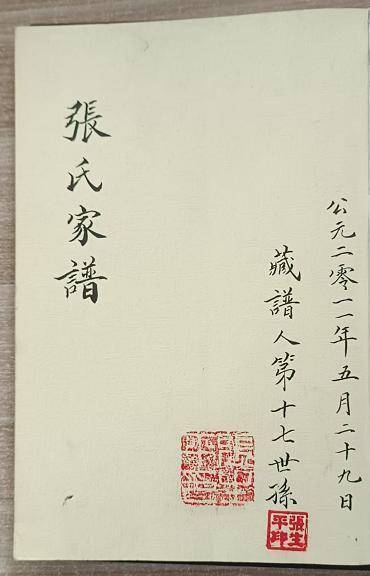 公元二零一一年五月二十九日
藏譜人第十七世孫
張生平印
張氏家譜